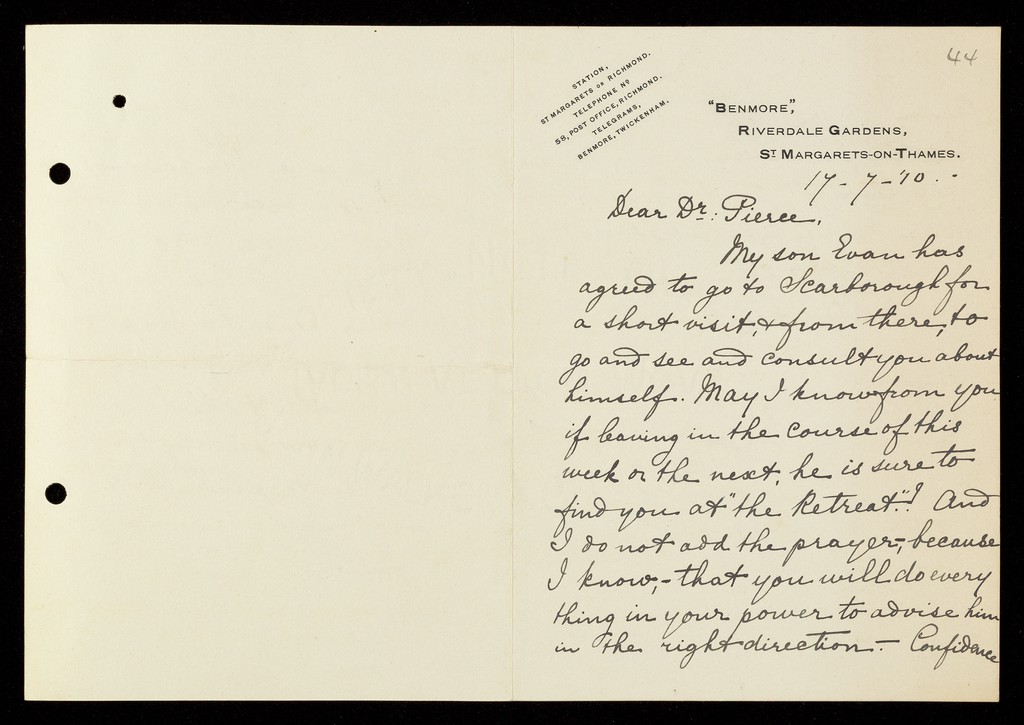 44
STATION,
ST MARGARETS OR RICHMOND.
TELEPHONE NO
58, POST OFFICE, RICHMOND.
TELEGRAMS,
BENMORE, TWICKENHAM.
"BENMORE",
RIVERDALE GARDENS,
ST MARGARETS-ON-THAMES.
17-7-'10..
Dear Dr: Pierce,
My son Evan has
agreed to go to Scarborough for
a short visit, & from there, to
go and see and consult you about
himself. May I know from you
if leaving in the course of this
week or the next, he is sure to
find you at "the Retreat"? And
I do not add the prayer,- because
I know,- that you will do every
thing in your power to advise him
in the right direction.- Confidence